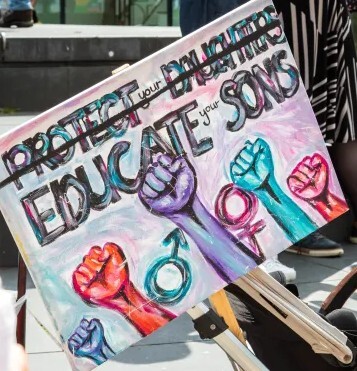 PROTECT your DAUGHTERS
EDUCATE your SONS